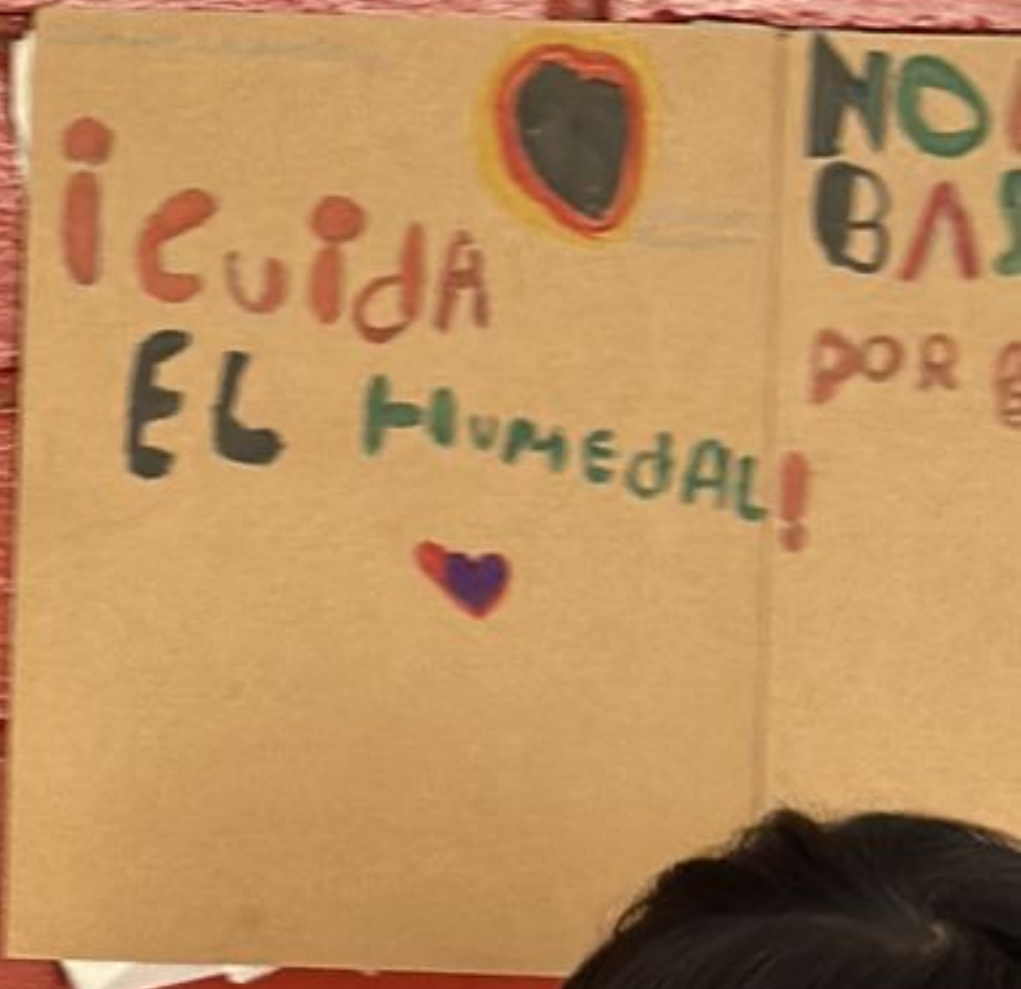 ¡CUidA
EL HUMEdAL!
NO
POR